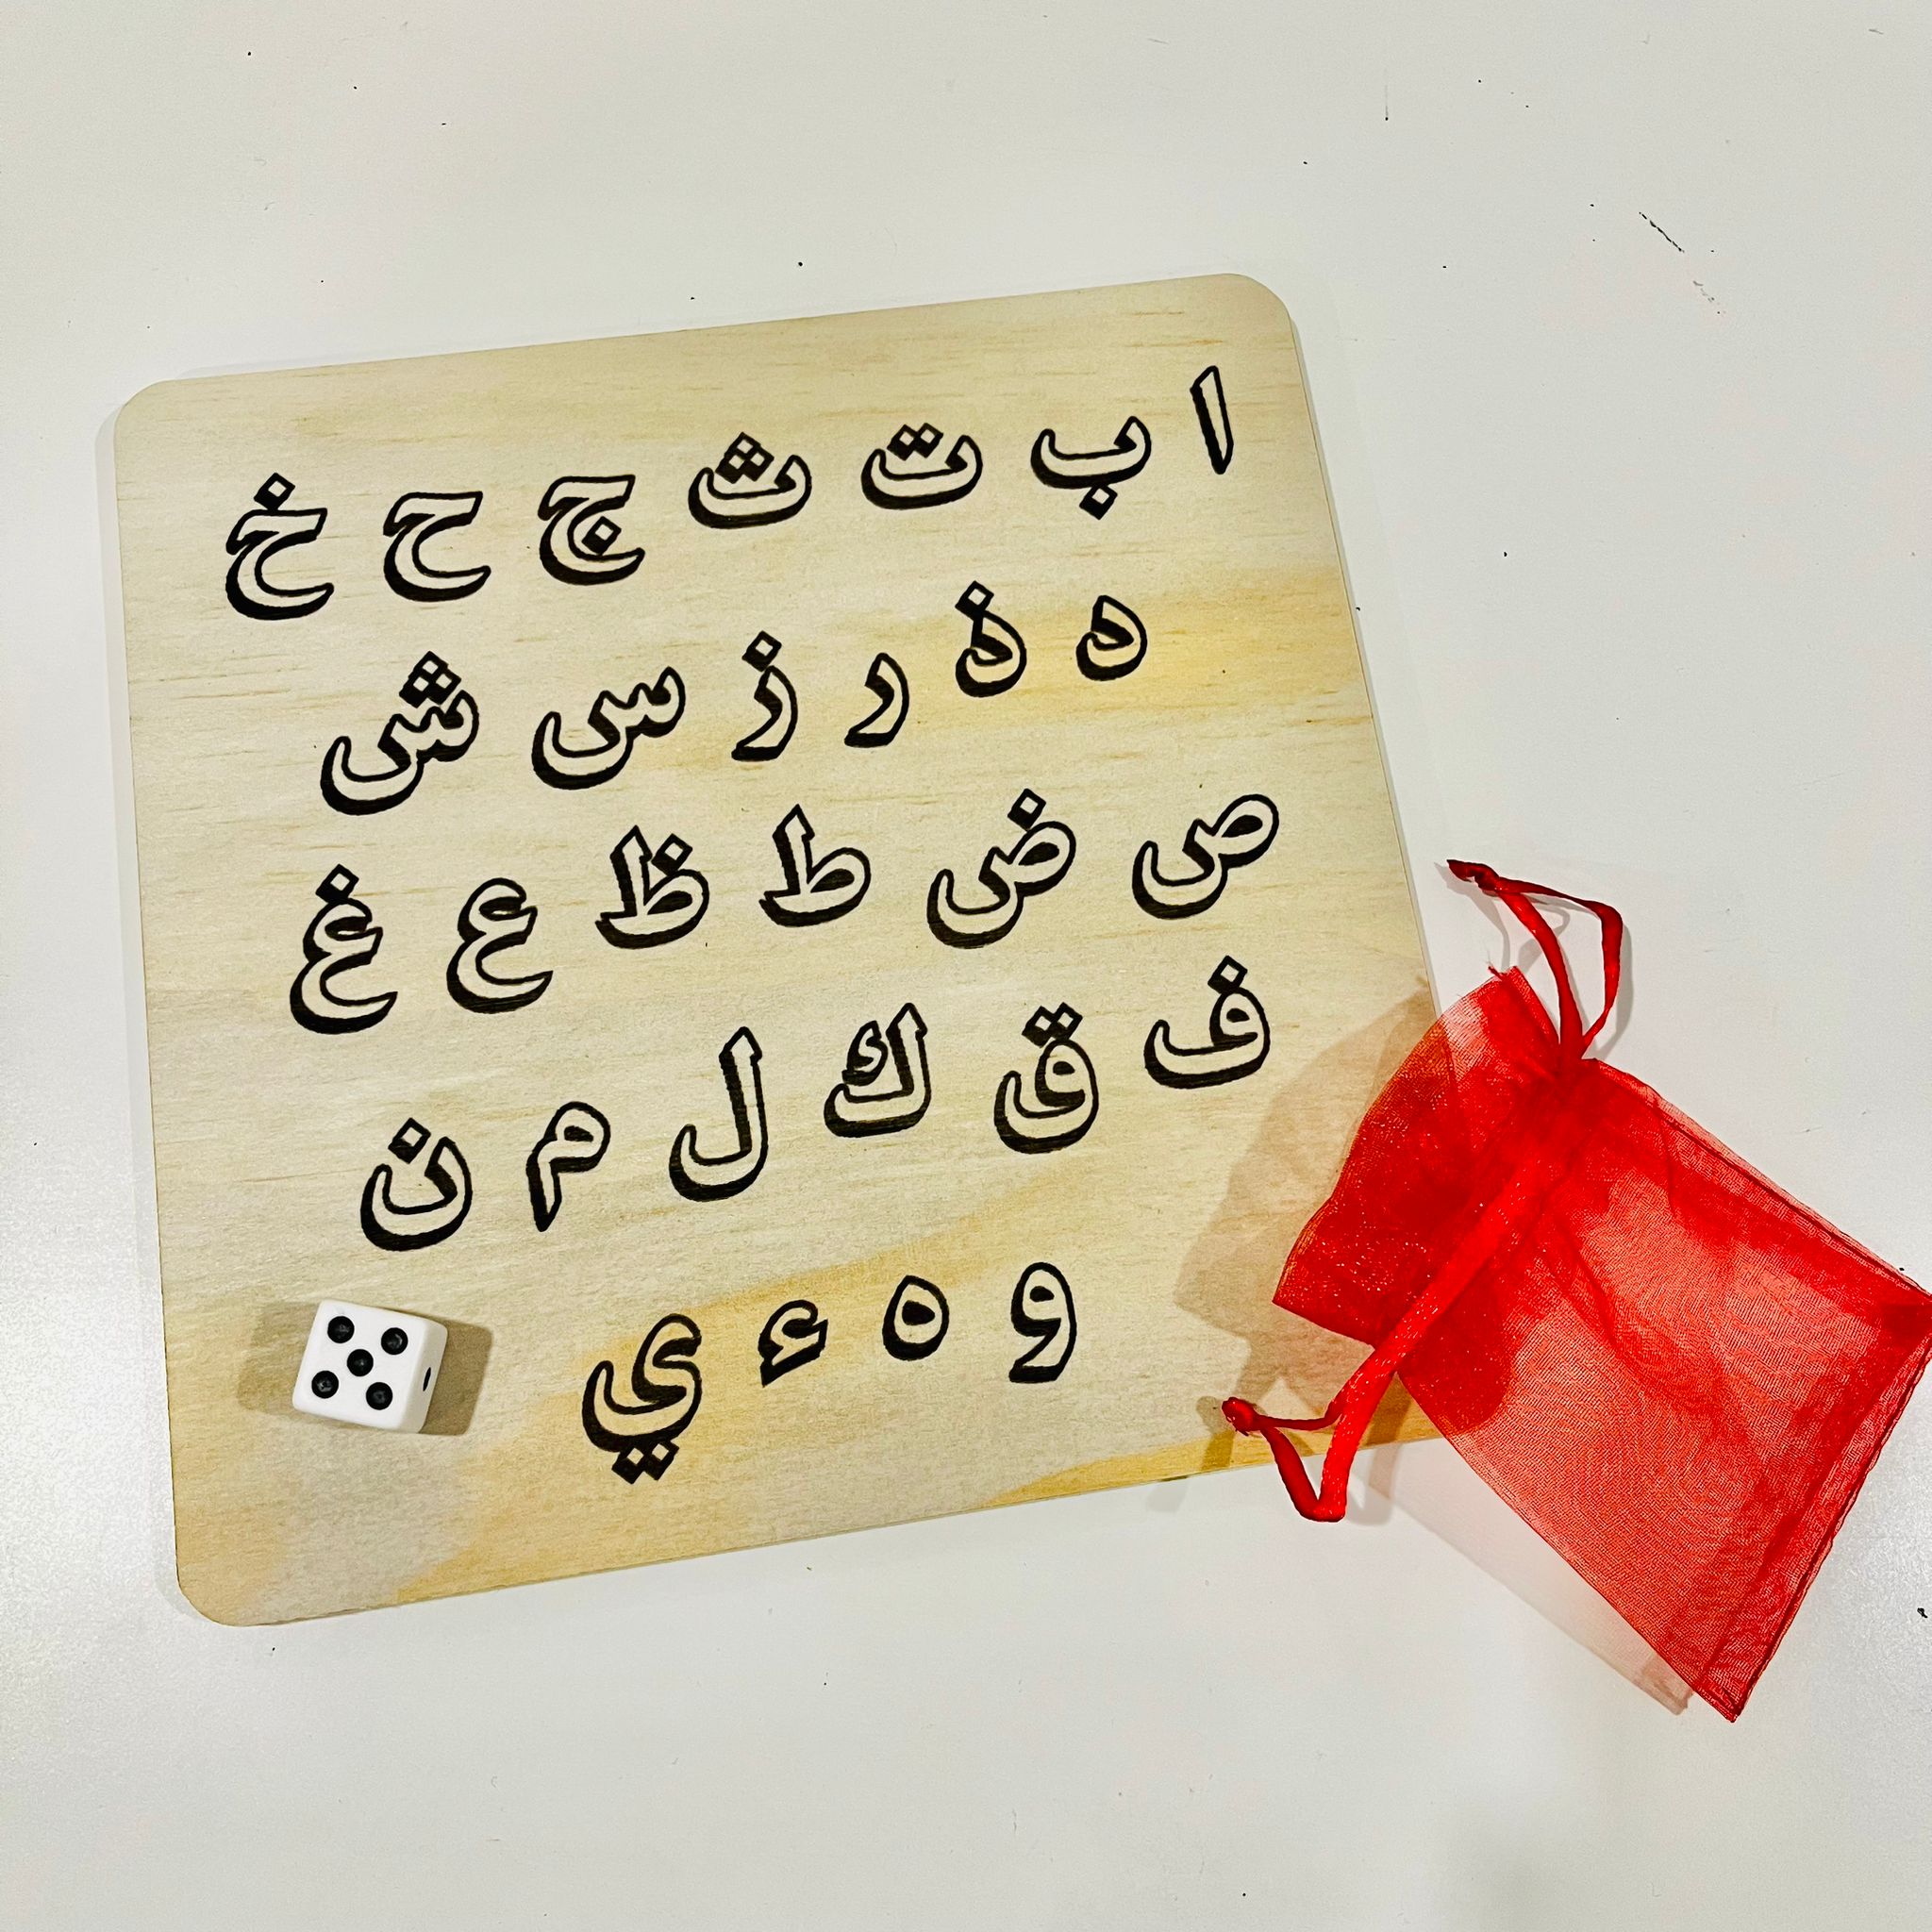 ا ب ت ث ج ح خ
د ذ ر ز س ش
ص ض ط ظ ع غ
ف ق ك ل م ن
و ه ء ي